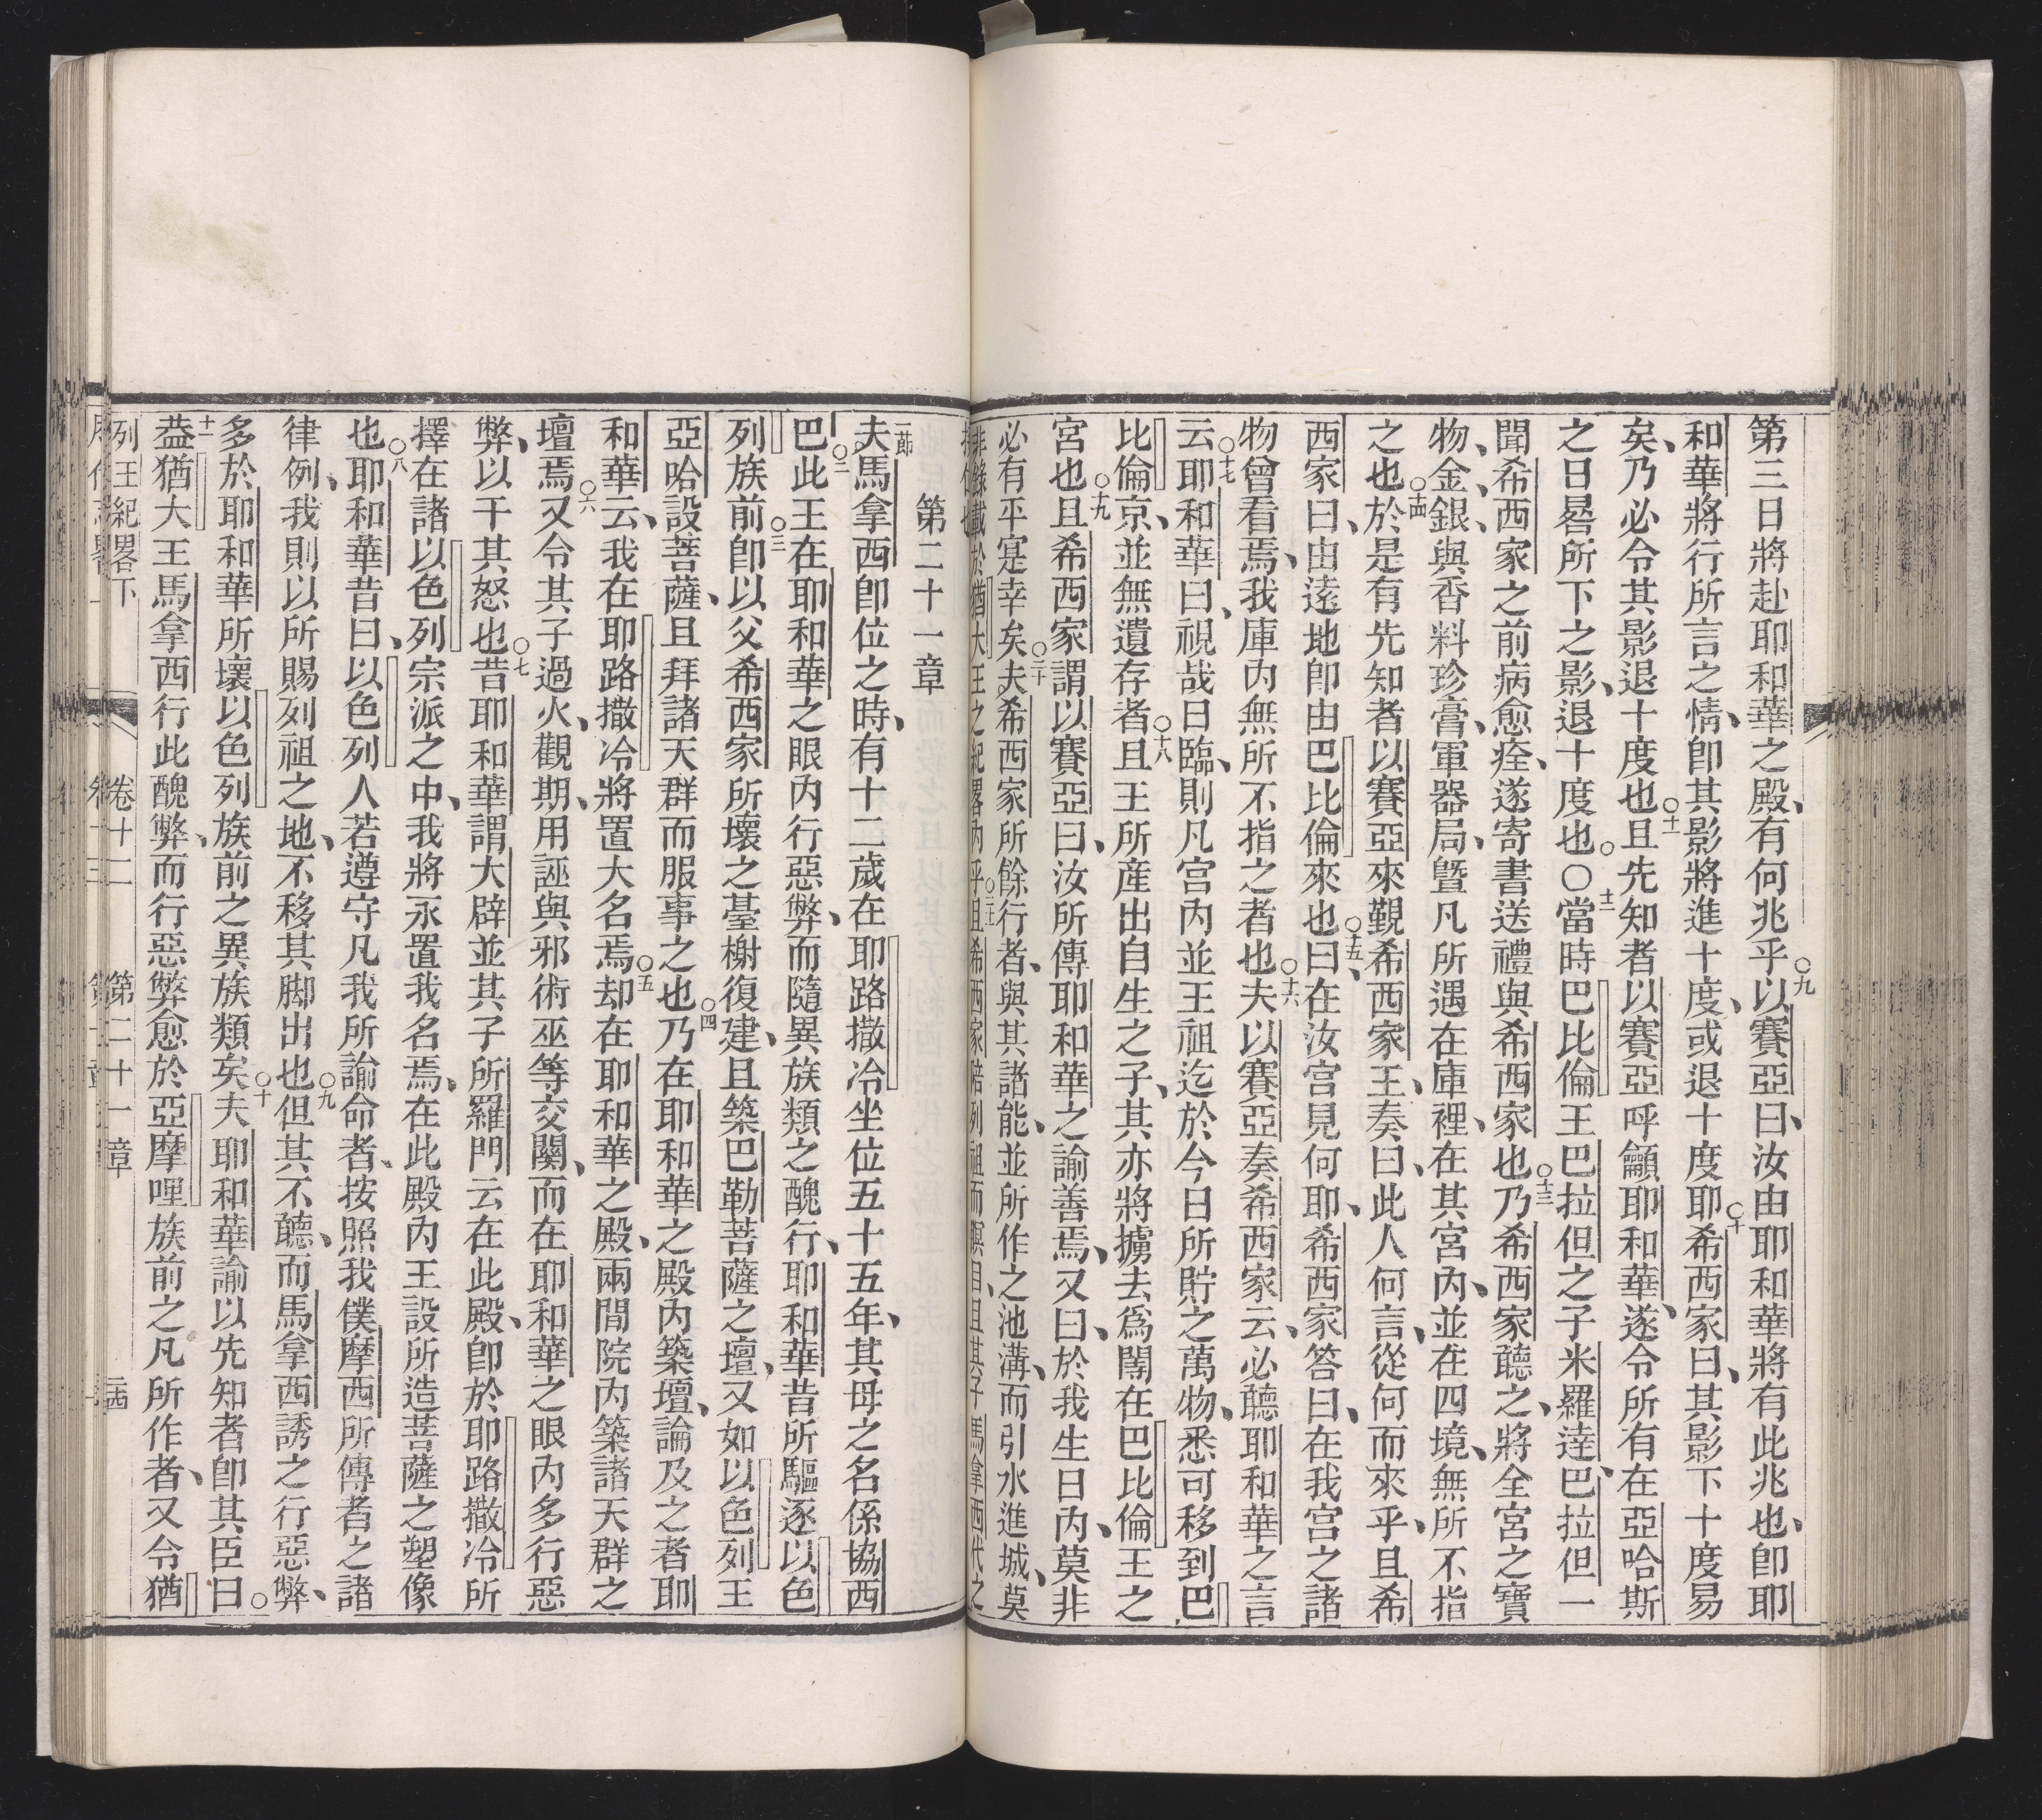 第三日將赴耶和華之殿、有何兆乎○九以賽亞曰、汝由耶和華將有此兆也、即耶
和華將行所言之情、即其影將進十度、或退十度耶○十希西家曰、其影下十度易
矣、乃必令其影退十度也○十一且先知者以賽亞呼籲耶和華、遂令所有在亞哈斯
之日晷所下之影、退十度也○○十二當時巴比倫王巴拉但之子米羅達巴拉但一
聞希西家之前病愈痊、遂寄書送禮與希西家也○十三乃希西家聽之、將全宮之寶
物、金、銀、與香料珍膏、軍器局、曁凡所遇在庫裡、在其宮內、並在四境、無所不指
之也○十四於是有先知者以賽亞來覲希西家王、奏曰、此人何言、從何而來乎、且希
西家曰、由遠地即由巴比倫來也○十五曰、在汝宮見何耶、希西家答曰、在我宮之諸
物曾看焉、我庫內無所不指之者也○十六夫以賽亞奏希西家云、必聽耶和華之言
云○十七耶和華曰、視哉日臨、則凡宮內並王祖迄於今日所貯之萬物、悉可移到巴
比倫京、並無遺存者○十八且王所產出自生之子、其亦將擄去爲閹在巴比倫王之
宮也○十九且希西家謂以賽亞曰、汝所傳耶和華之諭善焉、又曰、於我生日內、莫非
必有平寔幸矣○二十夫希西家所餘行者、與其諸能、並所作之池溝、而引水進城、莫
非錄載於猶大王之紀畧內乎○二十一且希西家偕列祖而瞑目、且其子馬拿西代之
接位也
第二十一章
一節夫馬拿西即位之時、有十二歲在耶路撒冷坐位五十五年、其母之名係協西
巴○二此王在耶和華之眼內行惡弊、而隨異族類之醜行、耶和華昔所驅逐以色
列族前○三即以父希西家所壞之臺榭復建、且築巴勒菩薩之壇、又如以色列王
亞哈設菩薩、且拜諸天群而服事之也○四乃在耶和華之殿內築壇、論及之者耶
和華云、我在耶路撒冷將置大名焉○五却在耶和華之殿、兩間院內築諸天群之
壇焉○六又令其子過火、觀期、用誣與邪術巫等交關、而在耶和華之眼內多行惡
弊、以干其怒也○七昔耶和華謂大辟並其子所羅門云在此殿、即於耶路撒冷所
擇在諸以色列宗派之中、我將永置我名焉、在此殿內王設所造菩薩之塑像
也○八耶和華昔曰、以色列人若遵守凡我所諭命者、按照我僕摩西所傳者之諸
律例、我則以所賜列祖之地、不移其脚出也○九但其不聽、而馬拿西誘之行惡弊、
多於耶和華所壞以色列族前之異族類矣○十夫耶和華諭以先知者即其臣曰○
十一葢猶大王馬拿西行此醜弊、而行惡弊愈於亞摩哩族前之凡所作者、又令猶
列王紀畧下 卷十二 第二十一章 二十四